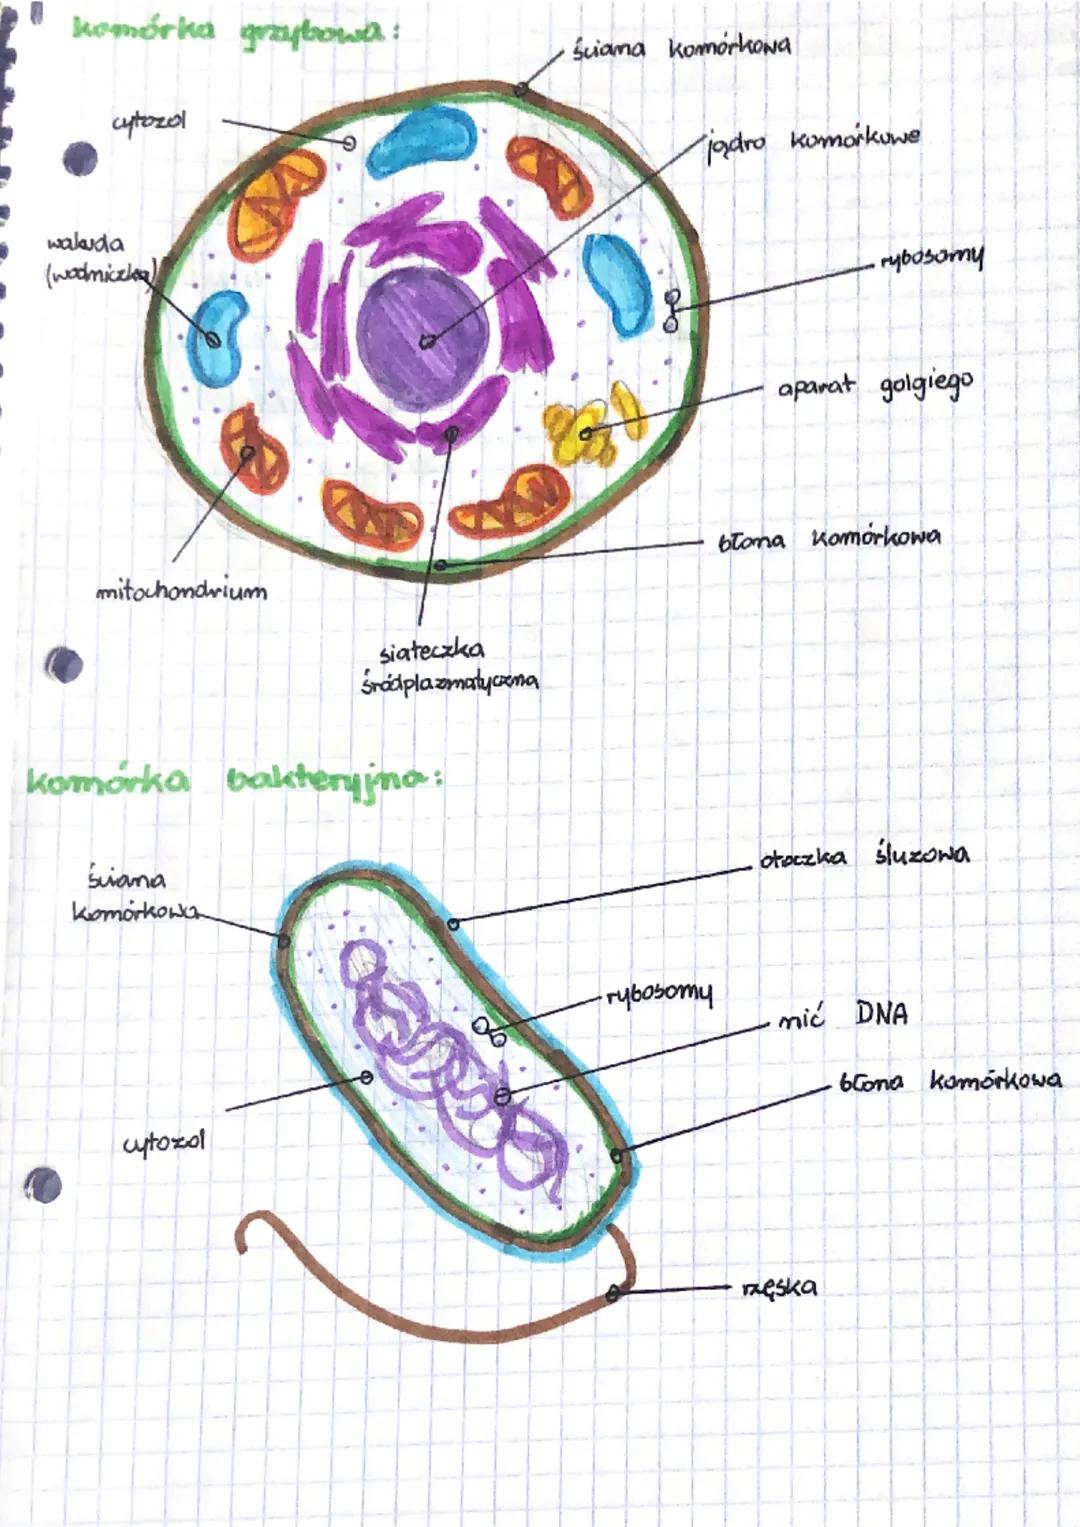 komórka grzybowa:
ściana komórkowa
cytozol
jądro komórkowe
wakuola
(wodniczka)
rybosomy
aparat golgiego
błona komórkowa
mitochondrium
siateczka
śródplazmatyczna
komórka bakteryjna:
otoczka śluzowa
ściana
komórkowa
rybosomy
nić DNA
błona komórkowa
cytozol
rzęska